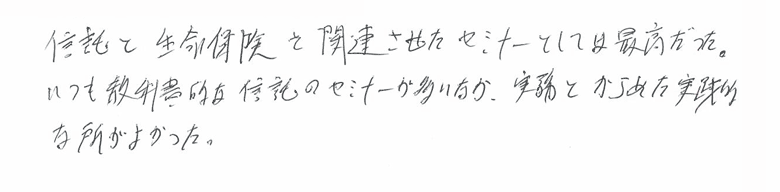 信託と生命保険を関連させたセミナーとしては最高だった。
いつも教科書的な信託のセミナーが多いなか、実務とからめた実践的
な所がよかった。